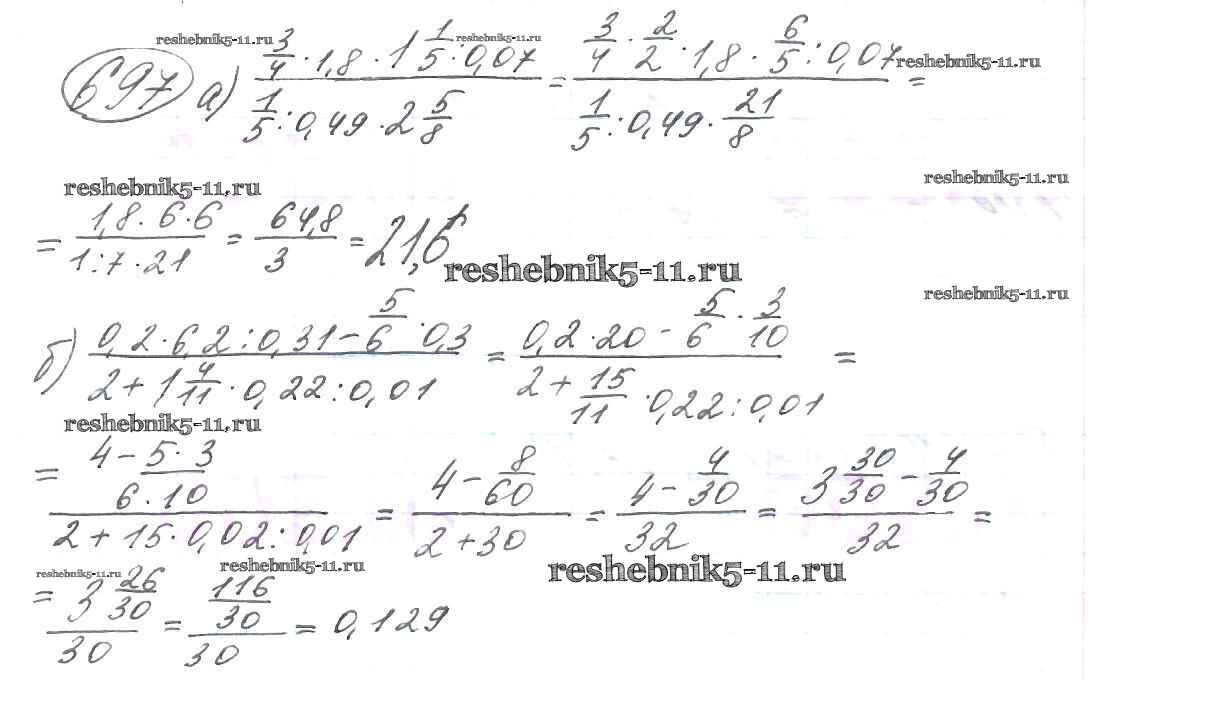 reshebnik5-11.ru reshebnik5-11.ru reshebnik5-11.ru
697 а) (3/4 · 1,8 · 1 1/5 : 0,07) / (1/5 : 0,49 · 2 5/8) = (3/4 · 2/2 · 1,8 · 6/5 : 0,07) / (1/5 : 0,49 · 21/8) =
reshebnik5-11.ru reshebnik5-11.ru
= (1,8 · 6 · 6) / (1 : 7 · 21) = 64,8 / 3 = 21,6
reshebnik5-11.ru
reshebnik5-11.ru
б) (0,2 · 6,2 : 0,31 − 5/6 · 0,3) / (2 + 1 4/11 · 0,22 : 0,01) = (0,2 · 20 − 5/6 · 3/10) / (2 + 15/11 · 0,22 : 0,01) =
reshebnik5-11.ru
= (4 − 5 · 3 / 6 · 10) / (2 + 15 · 0,02 : 0,01) = (4 − 8/60) / (2 + 30) = (4 − 4/30) / 32 = (3 30/30 − 4/30) / 32 =
reshebnik5-11.ru reshebnik5-11.ru reshebnik5-11.ru
= (3 26/30) / 30 = (116/30) / 30 = 0,129